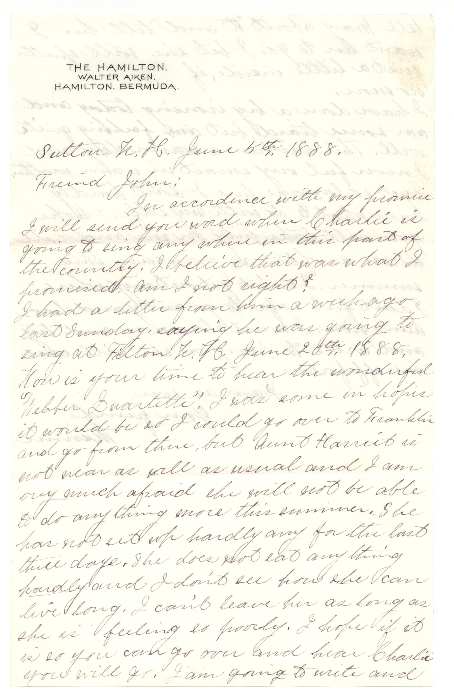 THE HAMILTON.
WALTER AIKEN.
HAMILTON, BERMUDA.
Sutton N. H. June 5th, 1888.
Freind John:
In accordence with my promise
I will send you word when Charlie is
going to sing any where in this part of
the country. I beleive that was what I
promised. am I not right?
I had a letter from him a week ago
last Sunday, saying he was going to
sing at Tilton N. H. June 20th, 1888.
Now is your time to hear the wonderful
"Webber Quartette". I was some in hopes
it would be so I could go over to Franklin
and go from there, but Aunt Harriet is
not near as well as usual and I am
very much afraid she will not be able
to do any thing more this summer. She
has not set up hardly any for the last
three days. She does not eat any thing
hardly and I don't see how she can
live long. I can't leave her as long as
she is feeling so poorly. I hope if it
is so you can go over and hear Charlie
you will go. I am going to write and